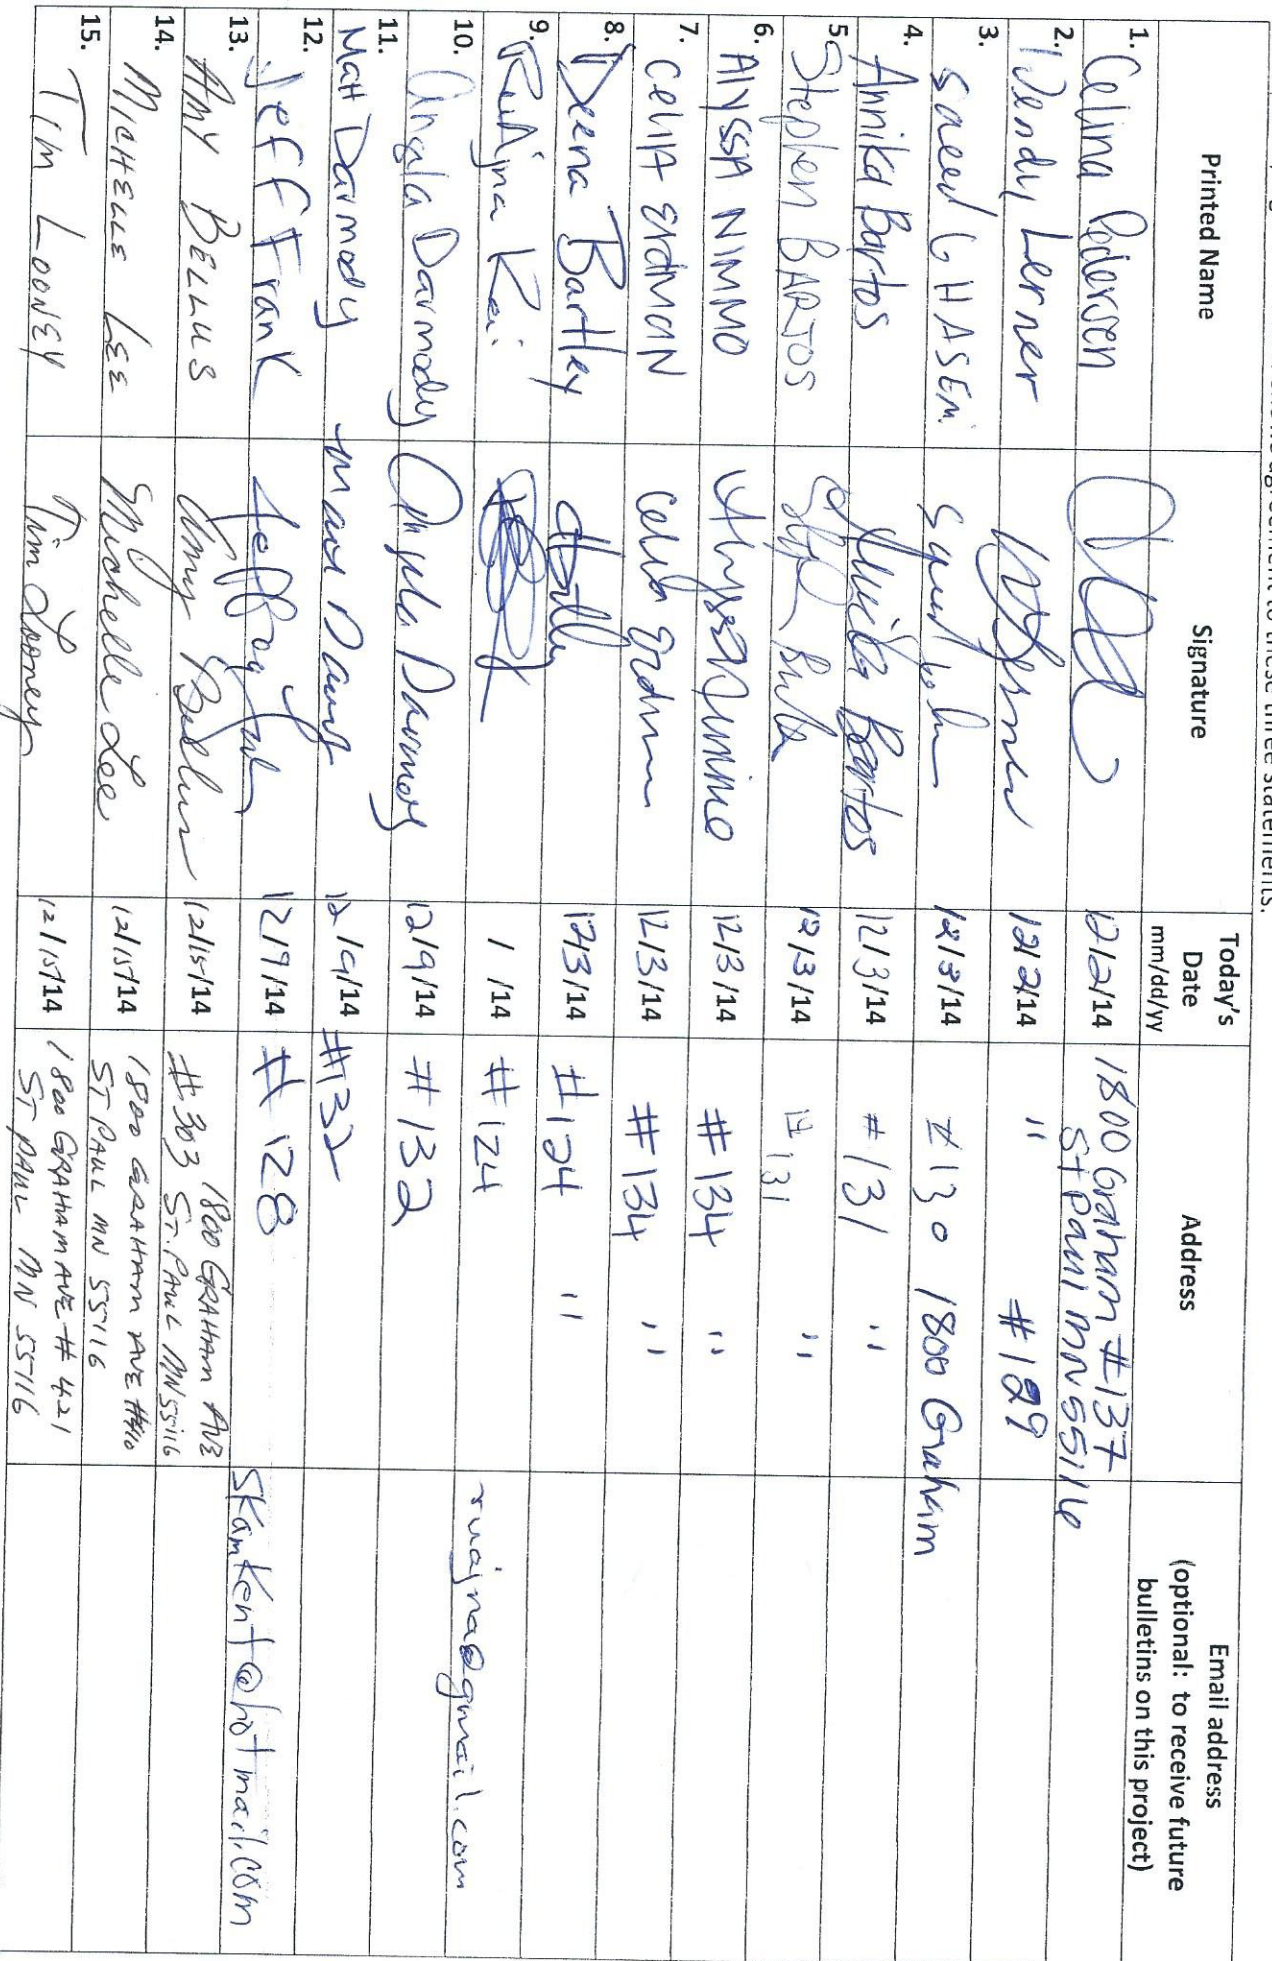 agreement to these three statements.
Printed Name
Signature
Today's
Date
mm/dd/yy
Address
Email address
(optional: to receive future
bulletins on this project)
1. Celina Pedersen 12/2/14 1800 Graham #137
St Paul MN 55116
2. Wendy Lerner 12/2/14 " #129
3. Saeed GHASEMi 12/3/14 #130 1800 Graham
4. Annika Bartos Annika Bartos 12/3/14 #131 "
5. Stephen BARTOS 12/3/14 #131 "
6. AlYSSA NIMMO Alyssa Nimmo 12/3/14 #134 "
7. CeliA ErdmaN Celia Erdman 12/3/14 #134 "
8. Deena Bartley 12/3/14 #124 "
9. RuAjna Kai / /14 #124 ruajna@gmail.com
10. Angela Darmody Angela Darmody 12/9/14 #132
11. Matt Darmody 12/9/14 #132
12. Jeff Frank 12/9/14 #128 Skamkent@hotmail.com
13. AMY BELLUS Amy Bellus 12/15/14 1800 GRAHAM AVE
#303 ST. PAUL MN 55116
14. MICHELLE LEE Michelle Lee 12/15/14 1800 GRAHAM AVE
ST PAUL MN 55116
15. TIM LOONEY Tim Looney 12/15/14 1800 GRAHAM AVE #421
ST PAUL MN 55116